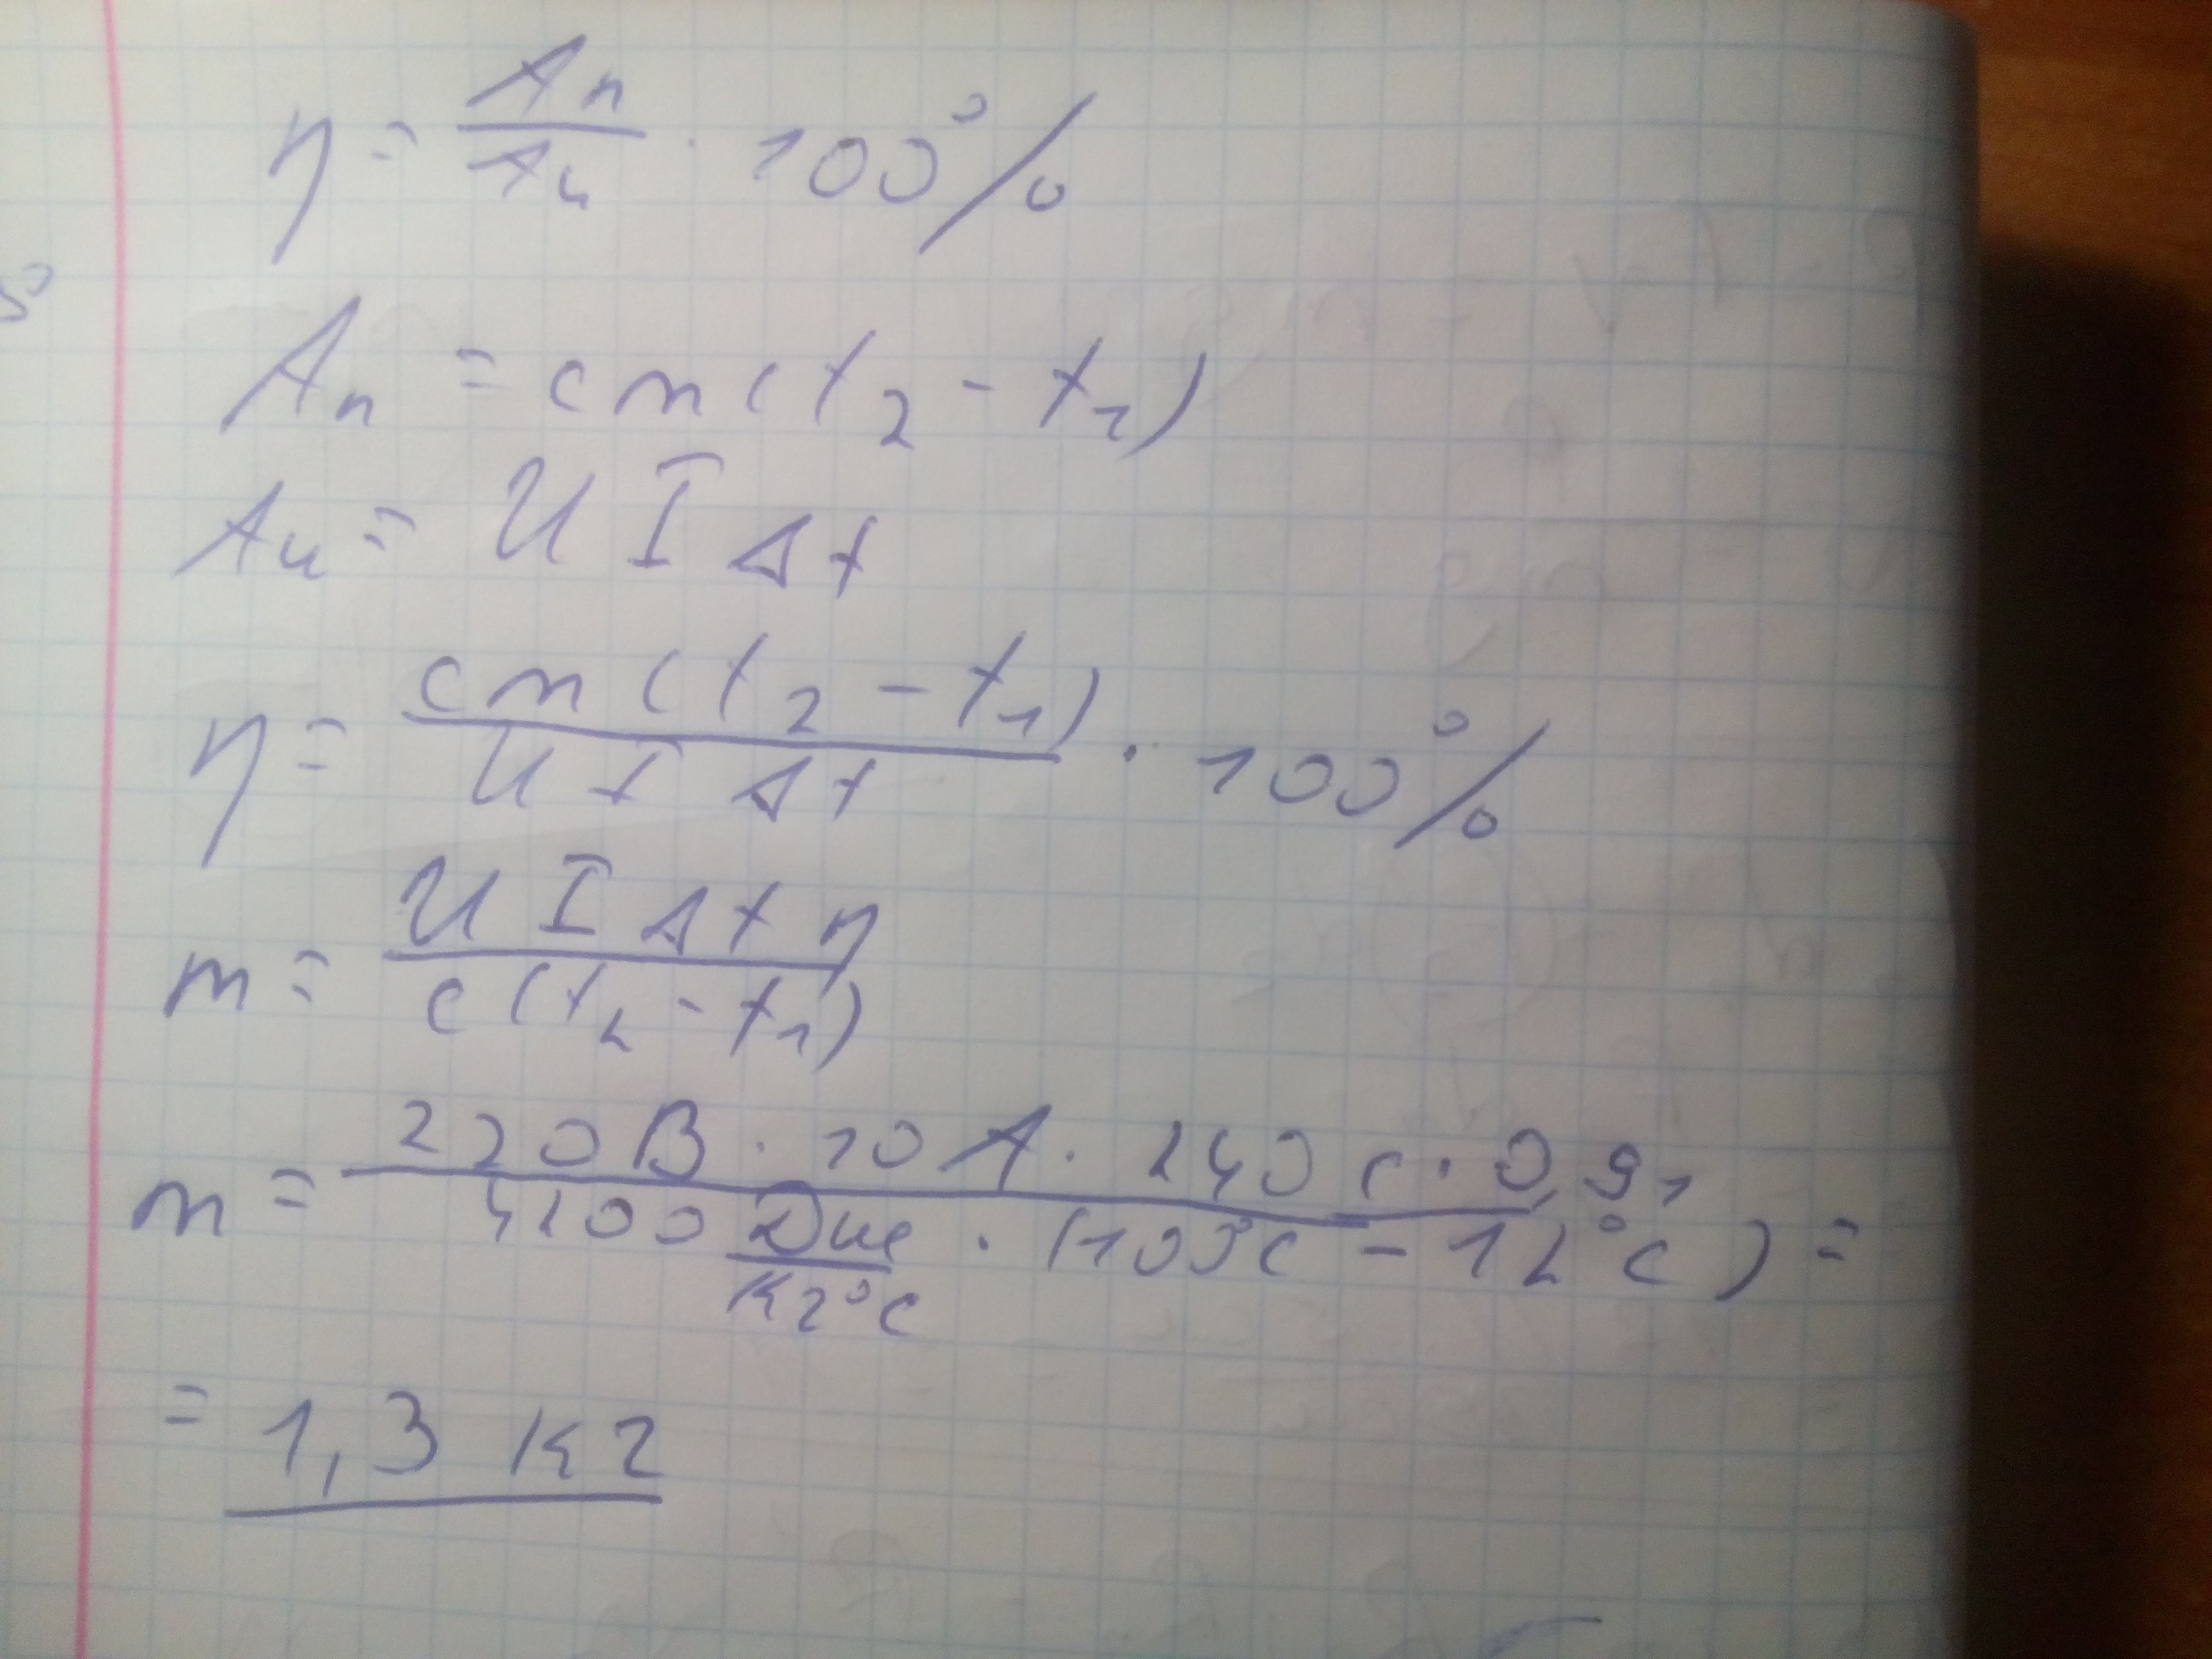 η = Aп/Aи · 100%
Aп = cm(t₂ - t₁)
Aи = UIΔt
η = cm(t₂ - t₁)/UIΔt · 100%
m = UIΔtη/c(t₂ - t₁)
m = 220 В · 10 А · 240 с · 0,91/4200 Дж/кг°C · (100°C - 12°C) =
= 1,3 кг